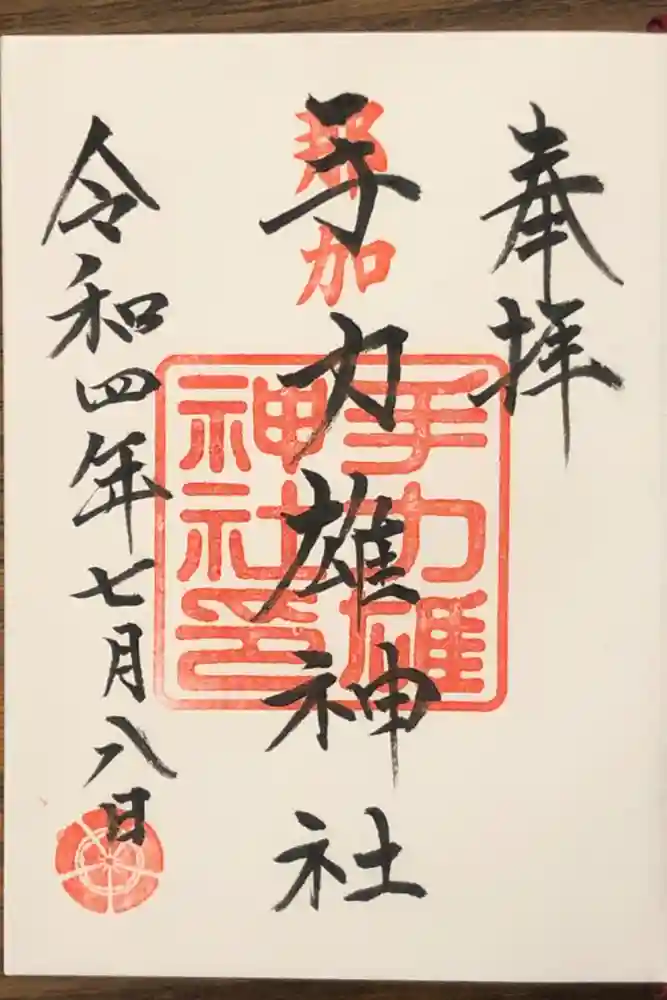 奉拝
手力雄神社
那加
手力雄
神社印
令和四年七月八日